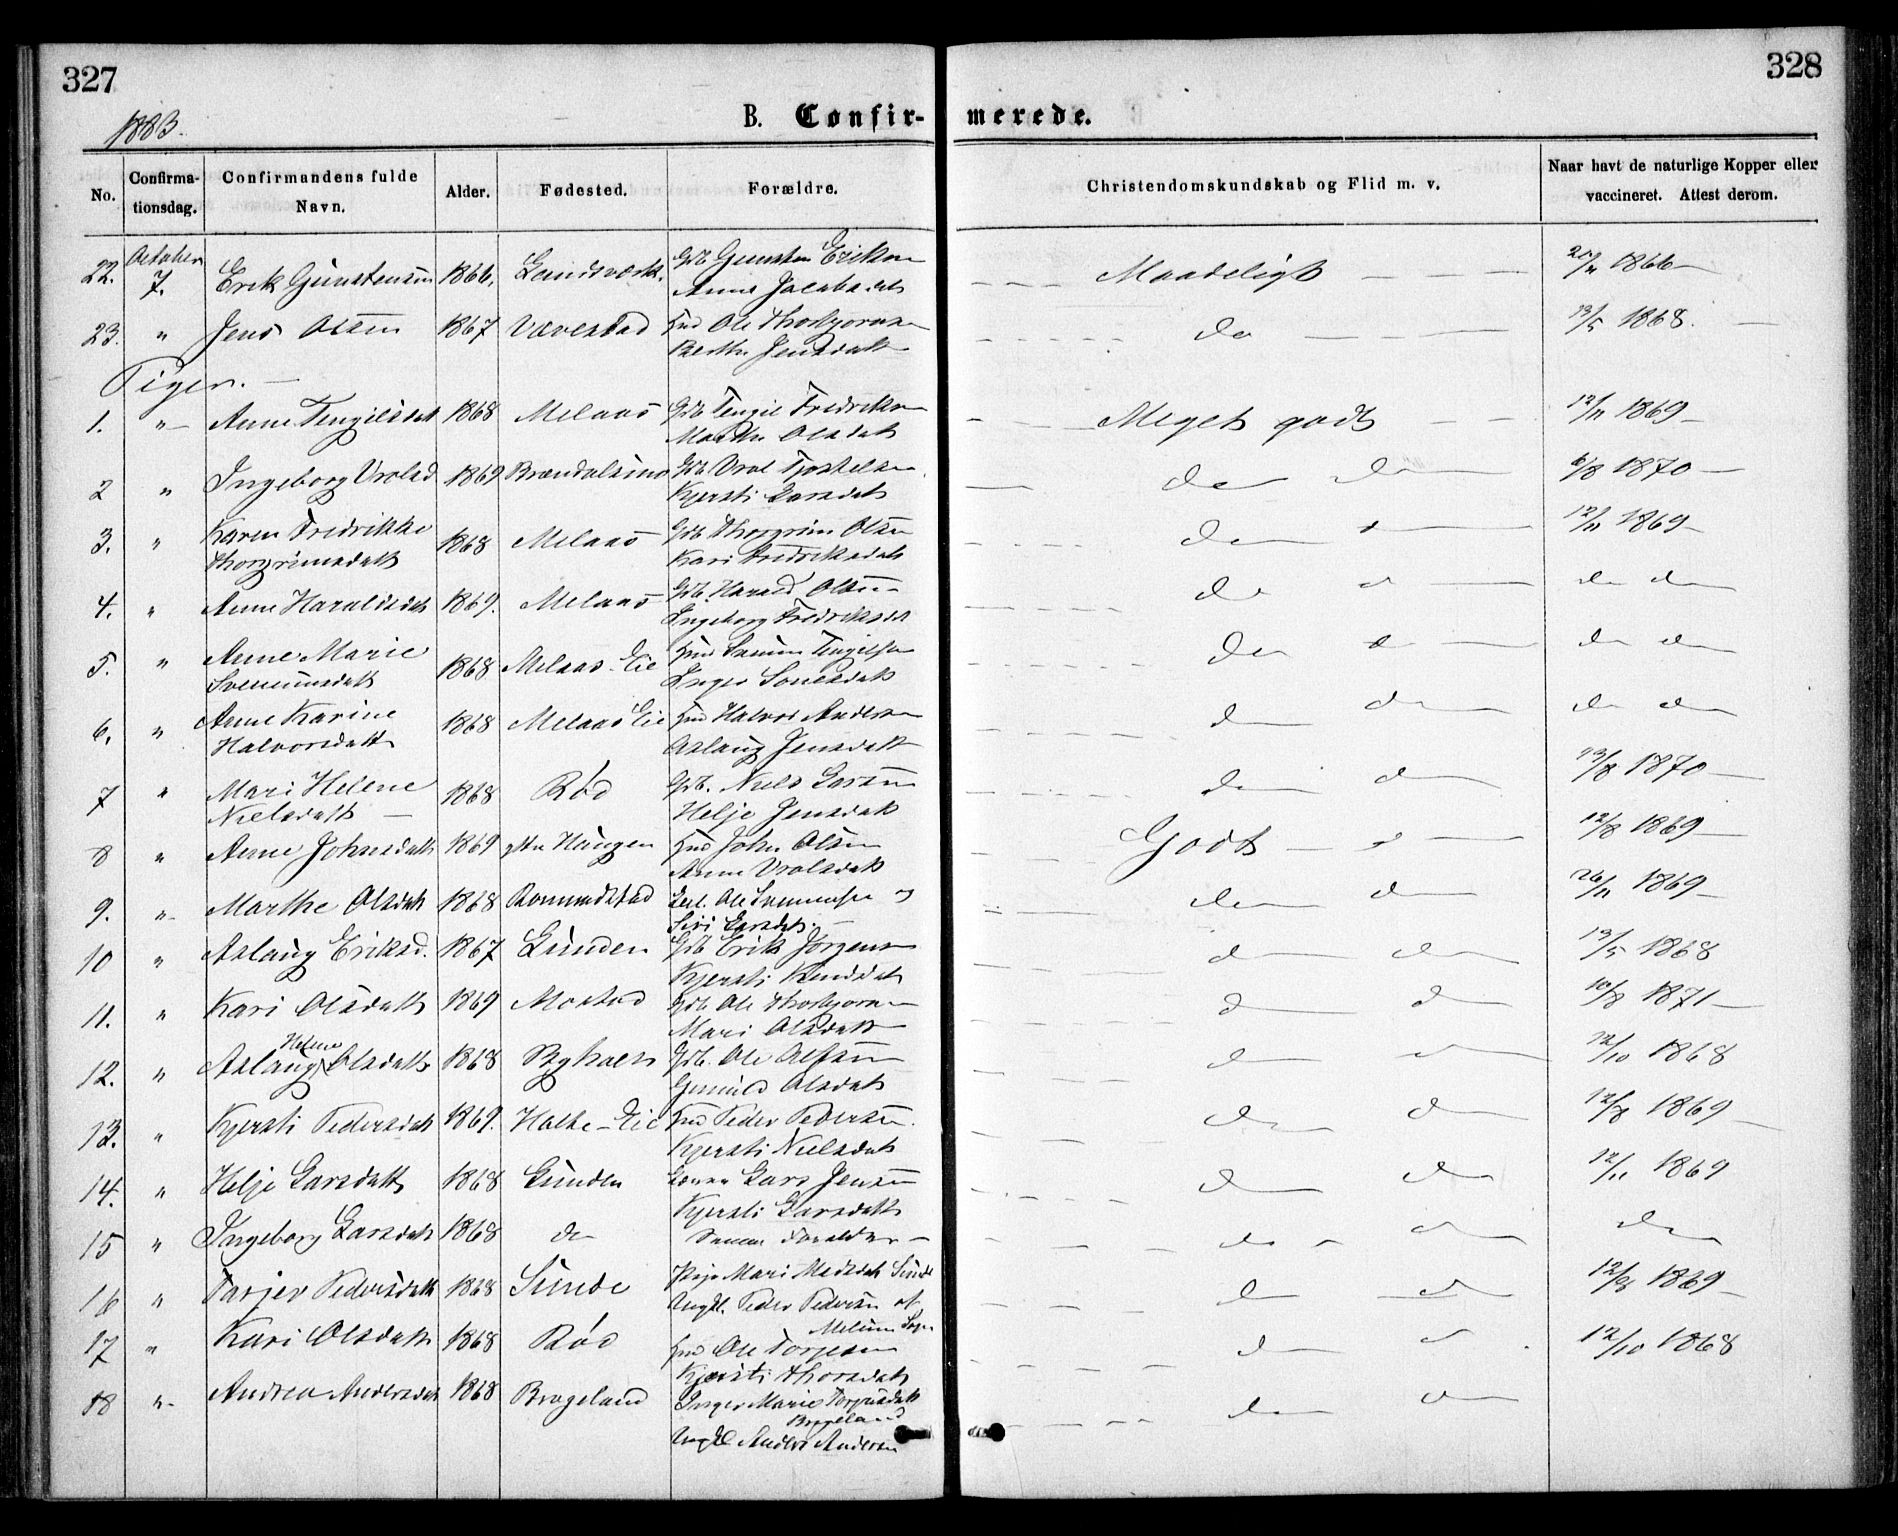 327
328
1883.
B. Confir-
merede.
No.
Confirma-
tionsdag.
Confirmandens fulde
Navn.
Alder.
Fødested.
Forældre.
Christendomskundskab og Flid m. v.
Naar havt de naturlige Kopper eller
vaccineret. Attest derom.
22. October 7. Erik Gunstensen 1866, Landsværk. Gdb Gunsten Eriksen
Anne Jacobsdat
Maadeligt 1866
23. " Jens Olsen 1867 Værestad Hmd Ole Thorbjørnsen
Berthe Jensdatt
do 13/5 1868.
Piger.
1. " Anne Tengilsdat 1868 Melaas Gdb Tengil Fredriksen
Marthe Olsdat
Meget godt 12/11 1869
2 " Ingeborg Vrolsd 1869 Gdb Vrol Tjostelsen
Kjersti Larsdat
do do 6/8 1870
3. " Karen Fredrikke
Thorgrimsdatt 1868 Melaas Gdb Thorgrim Olsen
Kari Fredriksdat
do d 12/11 1869
4. " Anne Haraldsdat 1869. Melaas Gdb. Harald Olsen
Ingeborg Fredriksdat
do d do do
5. " Anne Marie
Svennumsdatt 1868 Melaas Eie Hmd Tengilsen
Inger Sonesdat
do d do do
6. " Anne Karine
Halvorsdatt 1868 Melaas Eie Hmd Halvor Andersen
Aslaug Jensdatt
do do do do
7 " Mari Helene
Nielsdatt 1868 Rød Gdb. Niels Larsen
Helje Jensdat
do do 23/8 1870
8 " Anne Johnsdatt 1869 Haugen Hmd John Olsen
Anne Vrolsdat
Godt d 12/8 1869
9. " Marthe Olsdat 1868 Romundstad Ole
Siri Larsdat.
do do 26/11 1869
10 " Aslaug Eriksd. 1867 Lunden Gdb Erik Jørgensen
Kjersti Knudsdat
do do 13/5 1868
11. " Kari Olsdatt 1869 Mostad Gdb Ole Thorbjørnsen
Mari Olsdatt
do do 10/8 1871
12. " Aslaug Helene Olsdatt 1868 Gdb. Ole Olsen
Gunild Olsdat
do do 12/10 1868
13. " Kjersti Pedersdat 1869. Holte Eie Hmd Peder Pedersen.
Kjersti Nielsdat
do do 12/8 1869
14. " Helje Larsdatt 1868 Lunden Lars Jensen
Kjersti Larsdatt
do do 12/11 1869
15 " Ingeborg Larsdat 1868 do Samme Forældre
do do do
16 " Tarjer Pedersdatt 1868 Sunde Pige Mari Madsdat Sunde
Ungkl. Peder Pedersen af
Melum Sogn
do do 12/8 1869
17 " Kari Olsdatt 1868 Rød Hmd Ole Torjesen
Kjersti Thorsdat
do d 12/10 1868
18 " Andrea Andersdat 1868 Brageland Inger Marie
Ungkl Anders Andersen
do do